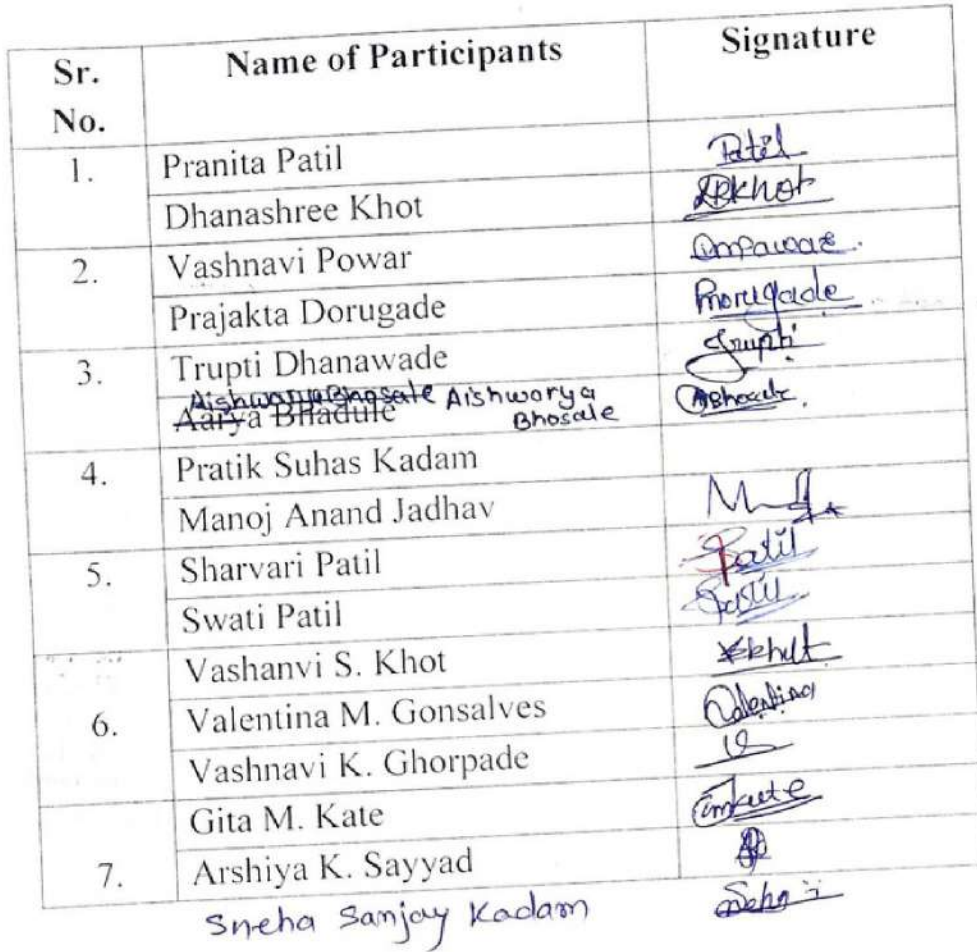 Sr. No. Name of Participants Signature
1. Pranita Patil Patil
Dhanashree Khot DPKhot
2. Vashnavi Powar
Prajakta Dorugade
3. Trupti Dhanawade Trupti
Aishwarya Bhosale Aishworya Bhosale
Aarya Bhadule ABhosale.
4. Pratik Suhas Kadam
Manoj Anand Jadhav
5. Sharvari Patil Patil
Swati Patil Patil
Vashanvi S. Khot
6. Valentina M. Gonsalves Valentina
Vashnavi K. Ghorpade
Gita M. Kate
7. Arshiya K. Sayyad
Sneha Sanjay Kadam